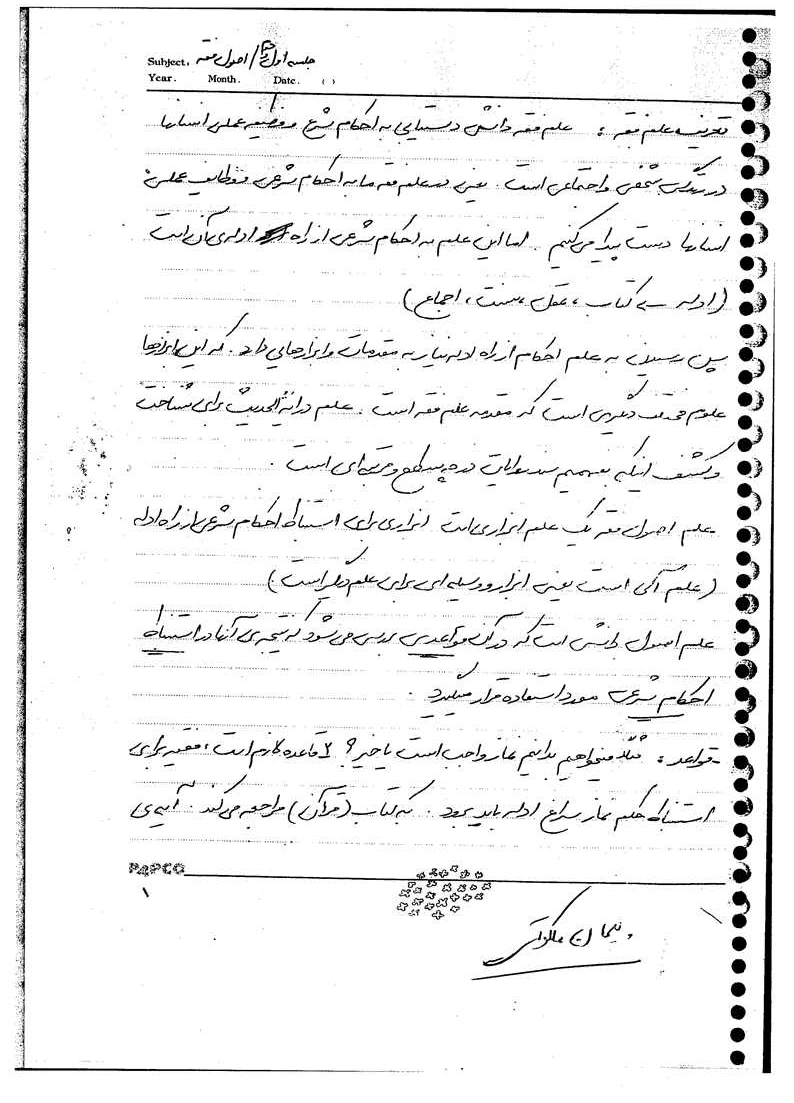 Subject. جلسه اول / اصول فقه
Year. Month. Date. ( )
تعریف علم فقه : علم فقه دانش دستیابی به احکام شرع و وظیفه عملی انسانها
در زندگی شخصی و اجتماعی است. یعنی در علم فقه ما به احکام شرعی و وظایف عملی
انسانها دست پیدا می‌کنیم. اما این علم به احکام شرعی از راه ادله‌ی آن است
(ادله ← کتاب، عقل، سنت، اجماع)
پس رسیدن به علم احکام از راه ادله نیاز به مقدمات و ابزارهایی دارد. که این ابزارها
علوم مختلف دیگری است که مقدمه علم فقه است. علم درایة الحدیث برای شناخت
و کشف اینکه بفهمیم سند روایات در چه سطح و مرتبه‌ای است.
علم اصول فقه یک علم ابزاری است ابزاری برای استنباط احکام شرعی از راه ادله
(علم آلی است یعنی ابزار و وسیله ای برای علم دیگر است.)
علم اصول دانشی است که در آن قواعدی بررسی می‌شود که نتیجه‌ی آنها در استنباط
احکام شرعی مورد استفاده قرار میگیرد.
قواعد : مثلا میخواهیم بدانیم نماز واجب است یا خیر؟ ۲ قاعده لازم است، فقیه برای
استنباط حکم نماز سراغ ادله باید برود. به کتاب (قرآن) مراجعه می‌کند. آیه‌ی
PAPCO
۱